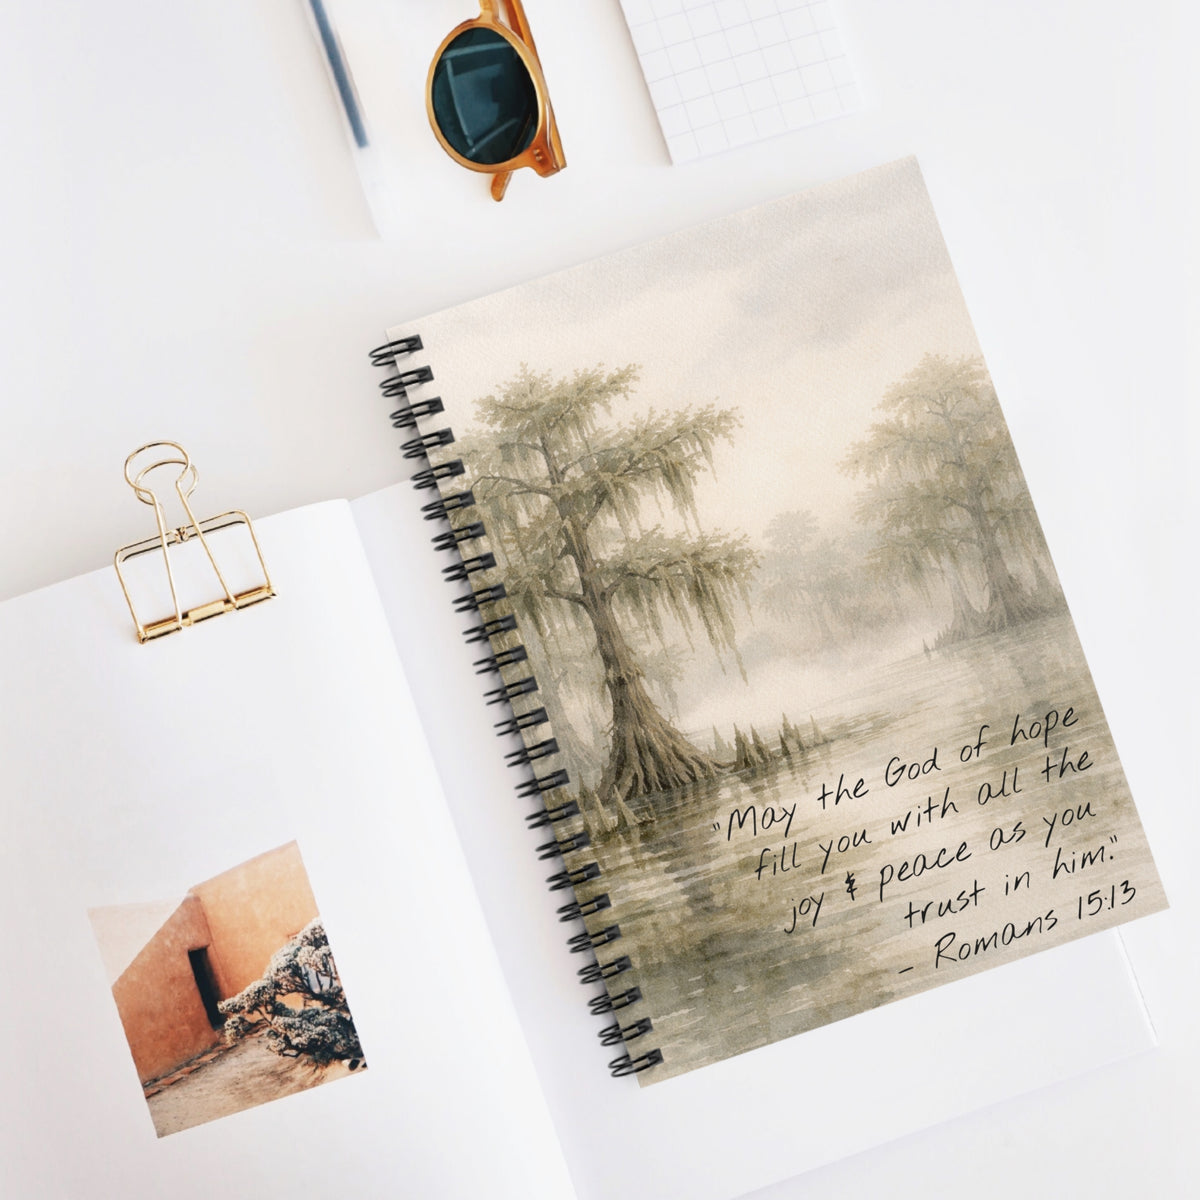 "May the God of hope
fill you with all the
joy & peace as you
trust in him."
- Romans 15:13